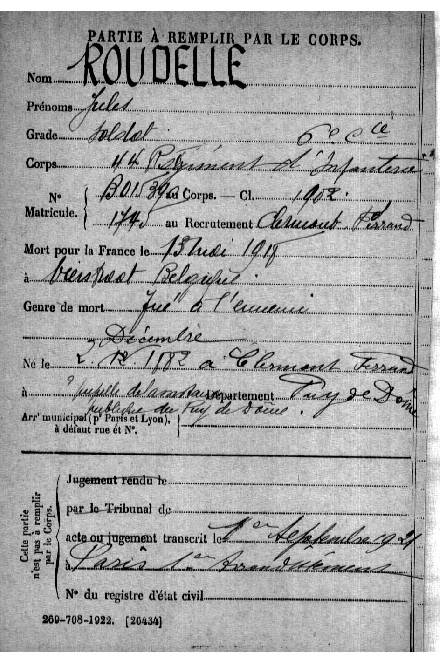 PARTIE À REMPLIR PAR LE CORPS.
Nom ROUDELLE
Prénoms Jules
Grade soldat 6e Cie
Corps 44 Régiment d'Infanterie
N° Matricule. { B01390 au Corps. — Cl. 1902.
1770 au Recrutement Clermont Ferrand
Mort pour la France le 13 mai 1918
à Vierstraat Belgique
Genre de mort Tué à l'ennemi
Décembre
Né le 2 1882 à Clermont Ferrand
à pupille de l'assistance Département Puy de Dôme
publique du Puy de Dôme.
Arrt municipal (pr Paris et Lyon), à défaut rue et N°.
Cette partie n'est pas à remplir par le Corps.
Jugement rendu le
par le Tribunal de
acte ou jugement transcrit le 1er Septembre 1921
à Paris 1er Arrondissement
N° du registre d'état civil
269-708-1922. [26434]